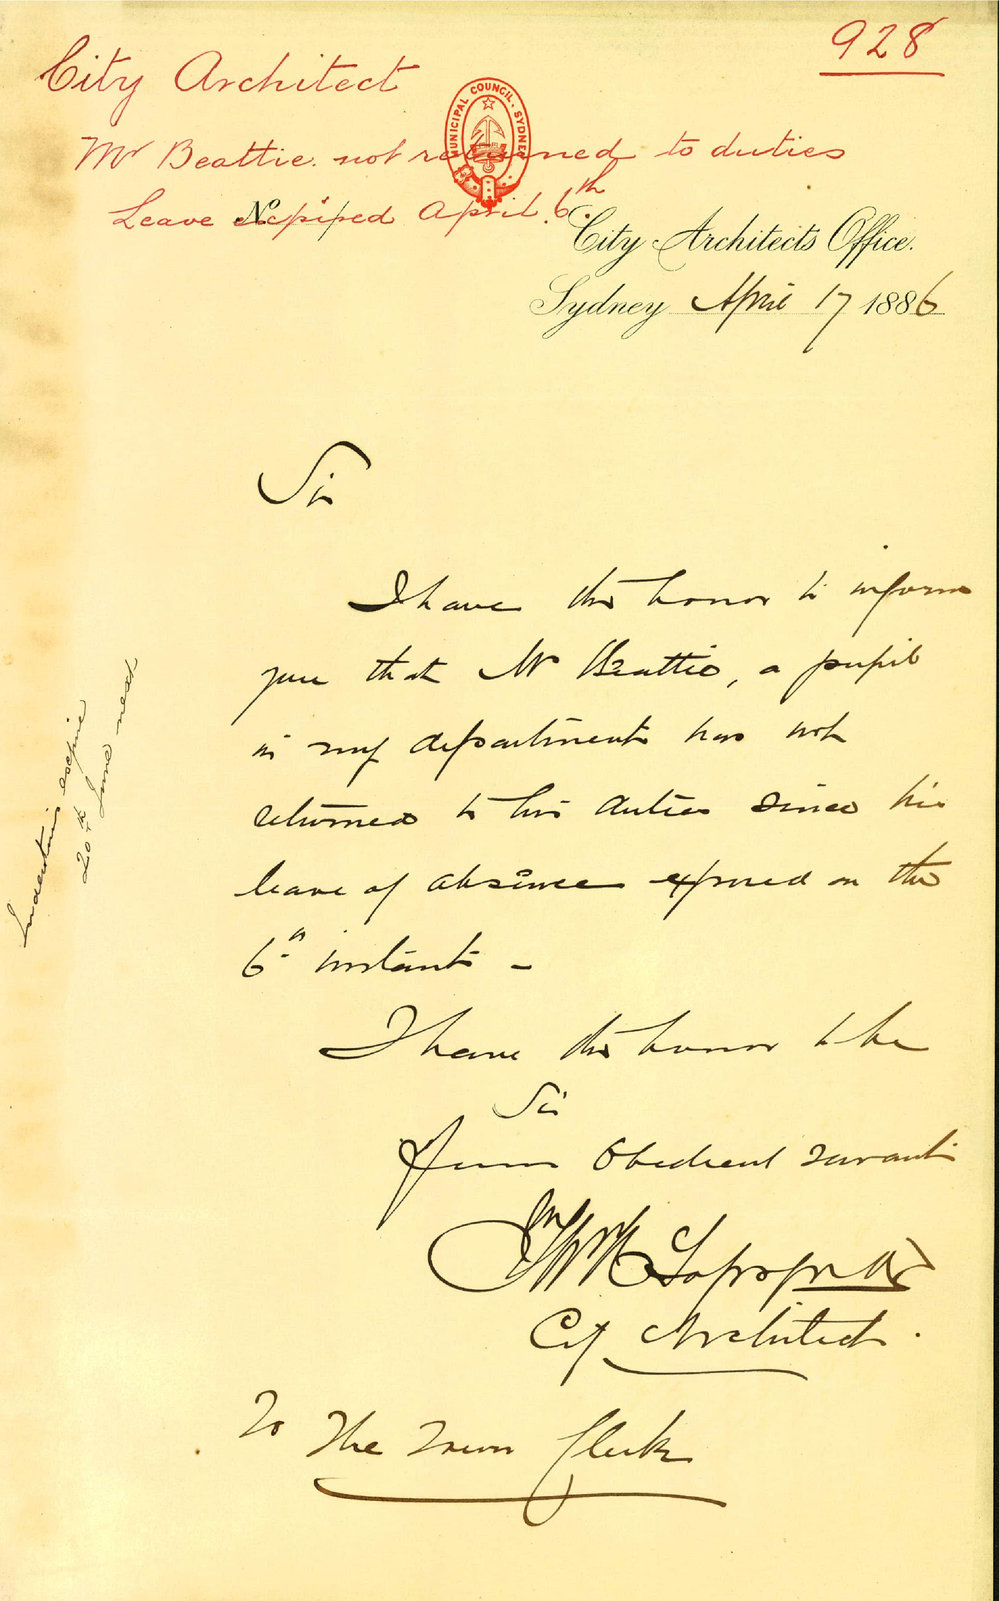 928
City Architect
Mr Beattie. not returned to duties
Leave expired April 6th
MUNICIPAL COUNCIL. SYDNEY
No.
City Architects Office.
Sydney April 17 1886
Sir
I have the honor to inform
you that Mr Beattie, a pupil
in my department has not
returned to his duties since his
leave of absence expired on the
6th instant -
I have the honor to be
Sir
Your Obedient servant
City Architect.
To The Town Clerk
Indentures expire
20th June next